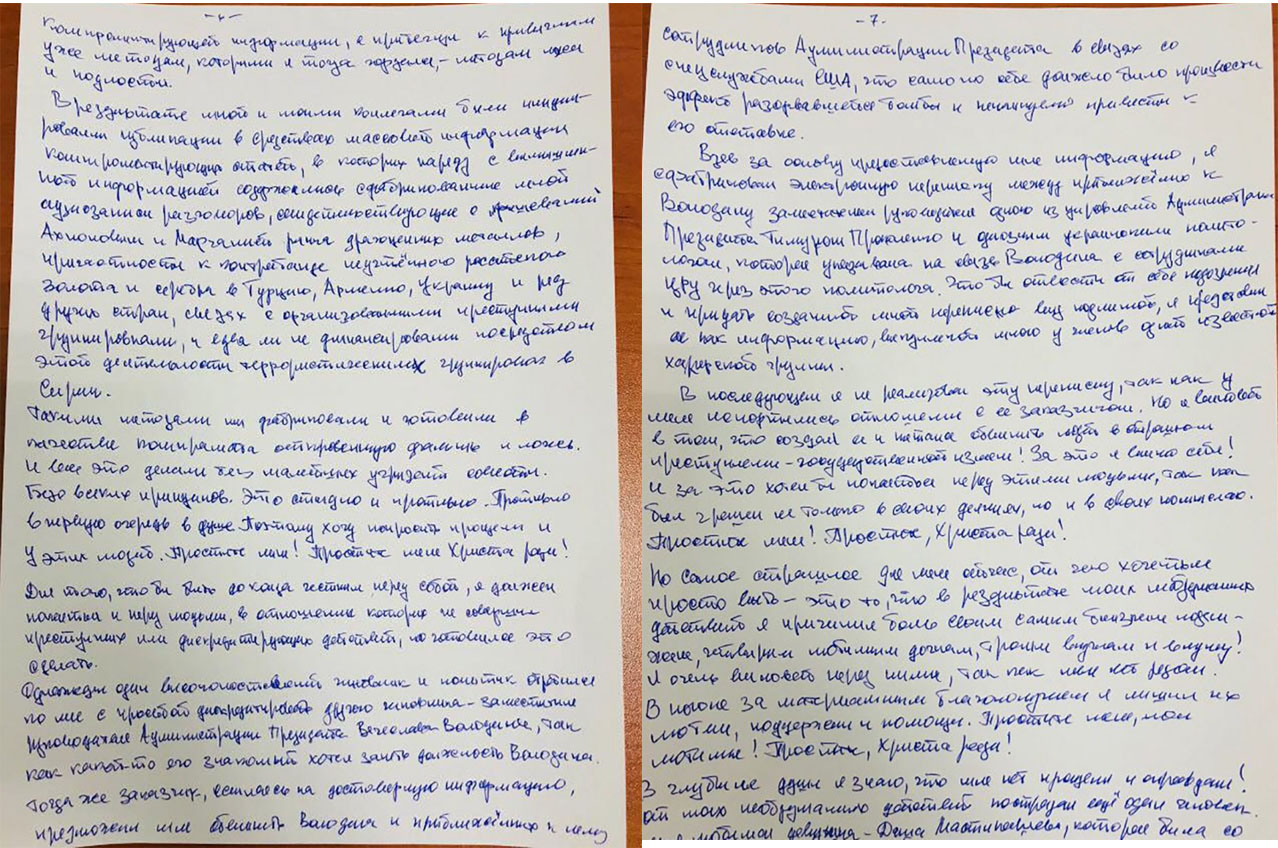 компрометирующей информации, а прибегли к привычным
уже методам, которыми я тогда гордился, – методам лжи
и подлости.
В результате мной и моими коллегами были иниции-
рованы публикации в средствах массовой информации
компрометирующих статей, в которых наряду с вымышлен-
ной информацией содержались сфабрикованные мной
аудиозаписи разговоров, свидетельствующие о
и рынка драгоценных металлов,
причастности к контрабанде неучтённого российского
золота и серебра в Турцию, Армению, Украину и ряд
других стран, связях с организованными преступными
группировками, и едва ли не финансировании посредством
этой деятельности террористических группировок в
Сирии.
Такими методами мы фабриковали и готовили в
качестве компромата откровенную фальшь и ложь.
И всё это делали без малейших угрызений совести.
Безо всяких принципов. Это стыдно и противно. Противно
в первую очередь в душе. Поэтому хочу попросить прощения и
у этих людей. Простите меня! Простите меня Христа ради!
Для того, чтобы быть до конца честным перед собой, я должен
покаяться и перед людьми, в отношении которых не совершил
преступных или дискредитирующих действий, но готовился это
сделать.
Однажды один высокопоставленный чиновник и политик обратился
ко мне с просьбой дискредитировать другого чиновника – заместителя
Руководителя Администрации Президента Вячеслава Володина, так
как какой-то его знакомый хотел занять должность Володина.
Тогда же заказчик, ссылаясь на достоверную информацию,
предложил мне обвинить Володина и приближённых к нему
- 7. -
сотрудников Администрации Президента в связях со
спецслужбами США, что само по себе должно было произвести
эффект разорвавшейся бомбы и неминуемо привести к
его отставке.
Взяв за основу предоставленную мне информацию, я
сфабриковал электронную переписку между приближённым к
Володину заместителем руководителя одного из управлений Администрации
Президента Тимуром Прокопенко и одиозным украинским полито-
логом, которая указывала на связь Володина с сотрудниками
ЦРУ через этого политолога. Чтобы отвести от себя подозрения
и придать созданной мной переписке вид подлинной, я представил
её как информацию, выкупленной мною у членов одной известной
хакерской группы.
В последующем я не реализовал эту переписку, так как у
меня испортились отношения с её заказчиком. Но я виноват
в том, что создал её и пытался обвинить людей в страшном
преступлении – государственной измене! За это я виню себя!
И за это хотел бы покаяться перед этими людьми, так как
был грешен не только в своих деяниях, но и в своих помыслах.
Простите меня! Простите, Христа ради!
Но самое страшное для меня сейчас, от чего хочется
просто выть – это то, что в результате моих необдуманных
действий я причинил боль своим самым близким людям –
жене, четверым любимым дочкам, троим внучкам и внуку!
Я очень виноват перед ними, так как меня нет рядом.
В погоне за материальным благополучием я лишил их
любви, поддержки и помощи. Простите меня, мои
любимые! Простите, Христа ради!
В глубине души я знаю, что мне нет прощения и оправдания!
От моих необдуманных действий пострадал ещё один человек.
любимая девушка – Даша которая была со